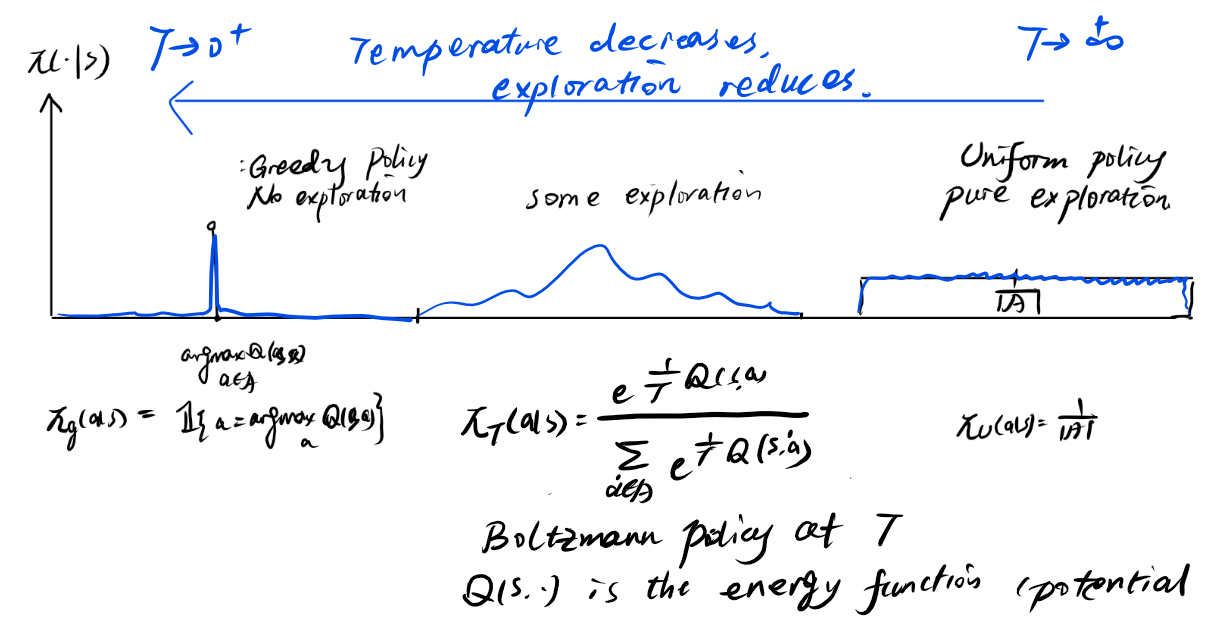 π(·|s)
T→0⁺
Temperature decreases,
exploration reduces.
T→+∞
:Greedy Policy
No exploration
some exploration
Uniform policy
pure exploration
1/|A|
argmax Q(s,a)
a∈A
π_g(a|s) = 𝟙{a = argmax_a Q(s,a)}
π_T(a|s) = e^{1/T Q(s,a)} / Σ_{a'∈A} e^{1/T Q(s,a')}
π_U(a|s) = 1/|A|
Boltzmann policy at T
Q(s,·) is the energy function (potential